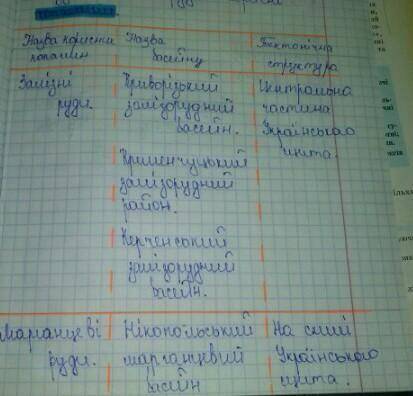 Назва корисних Назва Тектонічна
копалин басейну структура
Залізні Криворізький Центральна
руди. залізорудний частина
басейн. Українського
щита.
Кременчуцький
залізорудний
район.
Керченський
залізорудний
басейн.
Марганцеві Нікопольський На схилі
руди. марганцевий Українського
басейн щита.